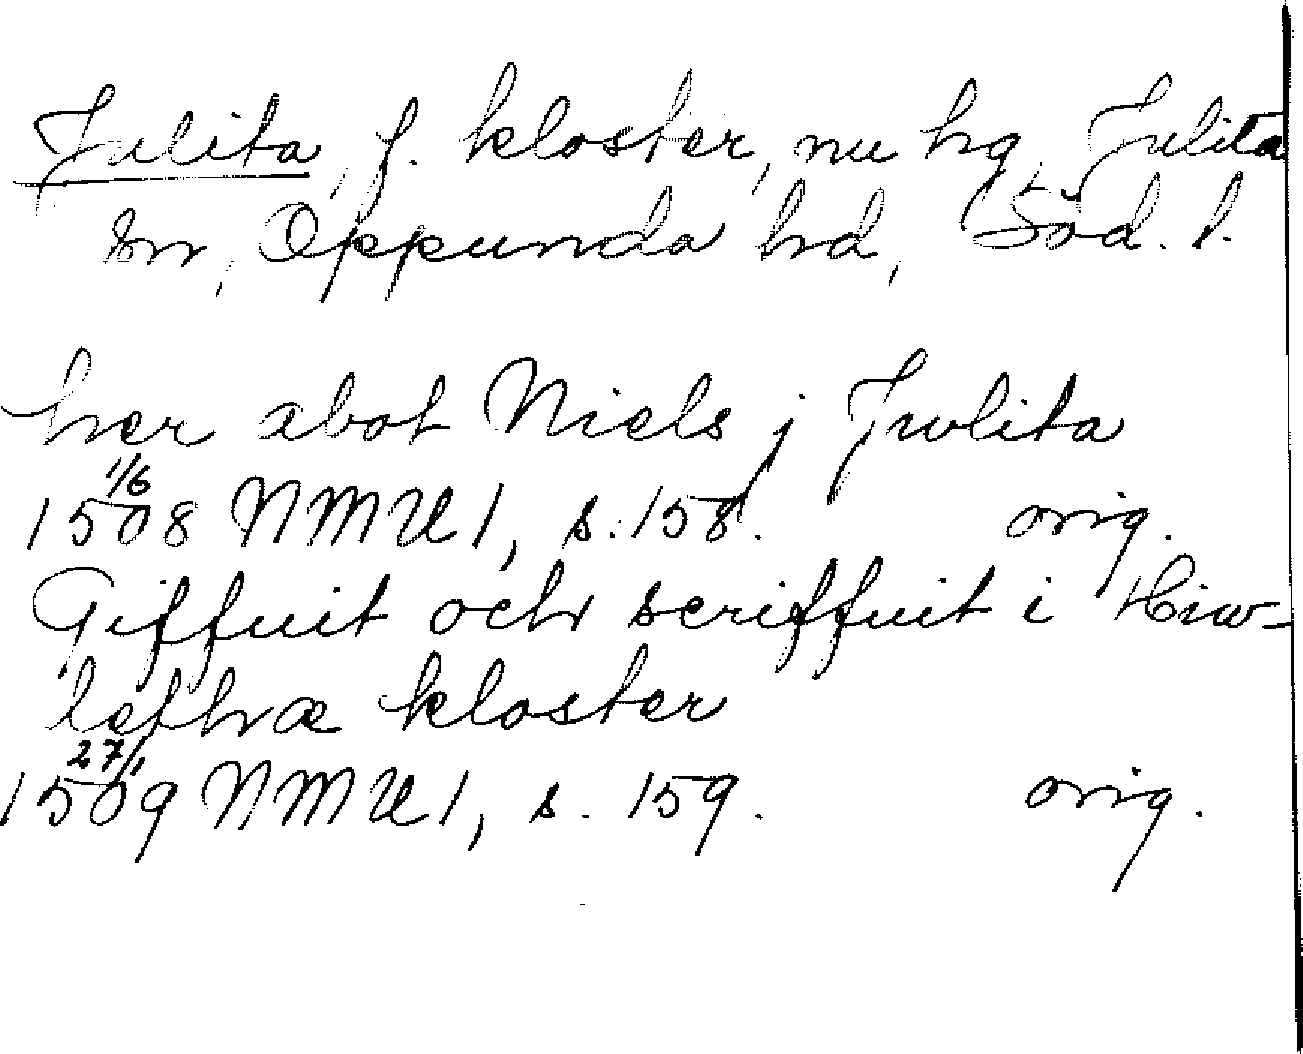 Julita, f. kloster, nu hg, Julita
sn, Oppunda hd, Söd. l.
her abot Niels j Jwlita
1/6
1508 NMU 1, s. 158. orig.
Giffuit och scriffuit i Hiw-
lethæ kloster
27/1
1509 NMU 1, s. 159. orig.